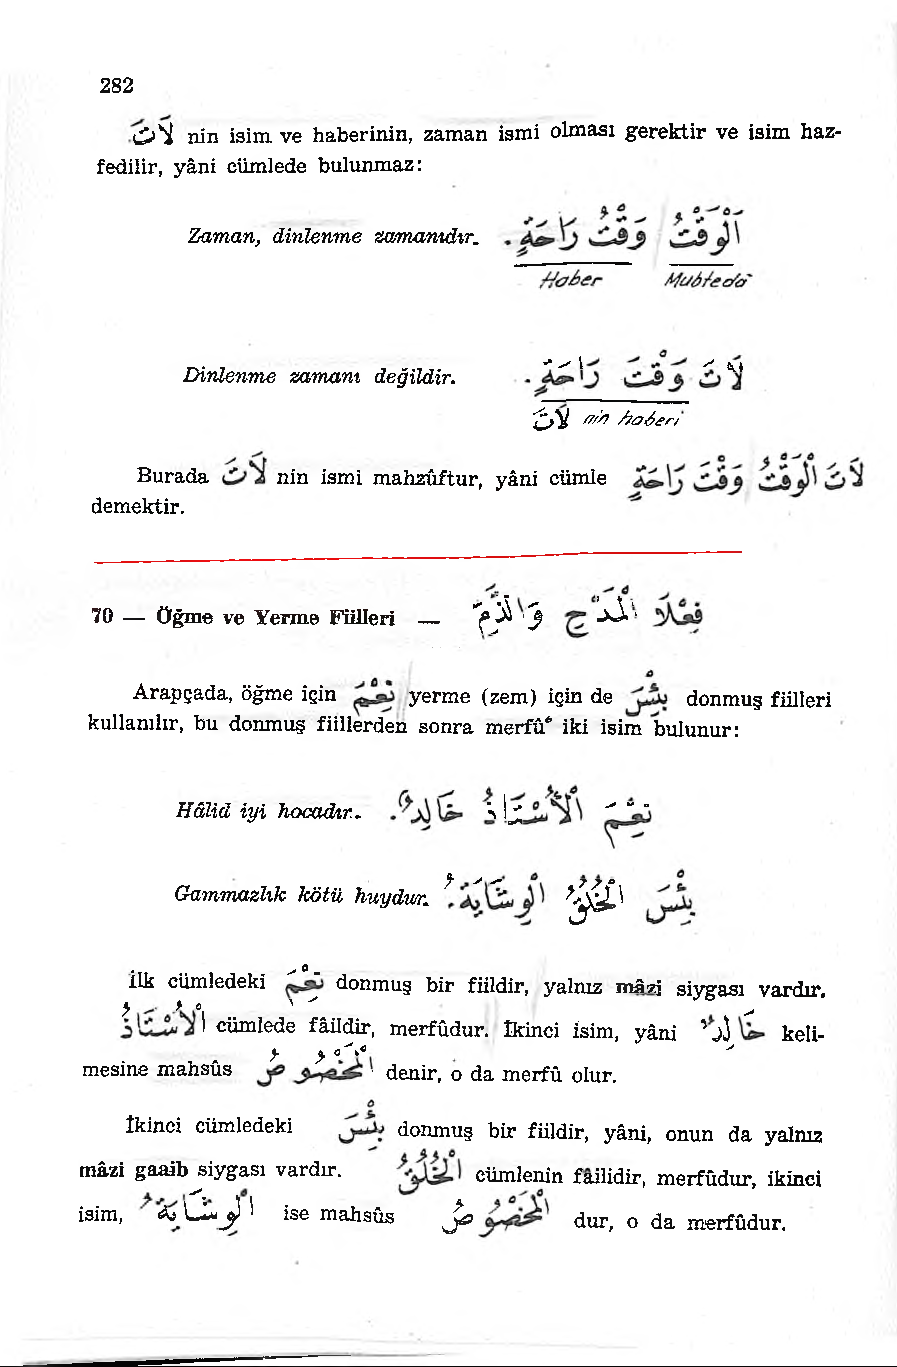 282
لَاتَ nin isim ve haberinin, zaman ismi olması gerektir ve isim haz-
fedilir, yâni cümlede bulunmaz:
Zaman, dinlenme zamanıdır. اَلْوَقْتُ وَقْتُ رَاحَةٍ .
Haber Mubteda
Dinlenme zamanı değildir. لَاتَ وَقْتَ رَاحَةٍ .
لَاتَ nin haberi
Burada لَاتَ nin ismi mahzûftur, yâni cümle لَاتَ الْوَقْتُ وَقْتَ رَاحَةٍ
demektir.
70 — Öğme ve Yerme Fiilleri — فِعْلَا الْمَدْحِ وَالذَّمِّ
Arapçada, öğme için نِعْمَ yerme (zem) için de بِئْسَ donmuş fiilleri
kullanılır, bu donmuş fiillerden sonra merfû' iki isim bulunur:
Hâlid iyi hocadır. نِعْمَ الْأُسْتَاذُ خَالِدٌ .
Gammazlık kötü huydur. بِئْسَ الْخُلُقُ الْوِشَايَةُ .
İlk cümledeki نِعْمَ donmuş bir fiildir, yalnız mâzi siygası vardır.
الْأُسْتَاذُ cümlede fâildir, merfûdur. İkinci isim, yâni خَالِدٌ keli-
mesine mahsûs الْمَخْصُوصُ denir, o da merfû olur.
İkinci cümledeki بِئْسَ donmuş bir fiildir, yâni, onun da yalnız
mâzi gaaib siygası vardır. الْخُلُقُ cümlenin fâilidir, merfûdur, ikinci
isim, الْوِشَايَةُ ise mahsûs الْمَخْصُوصُ dur, o da merfûdur.